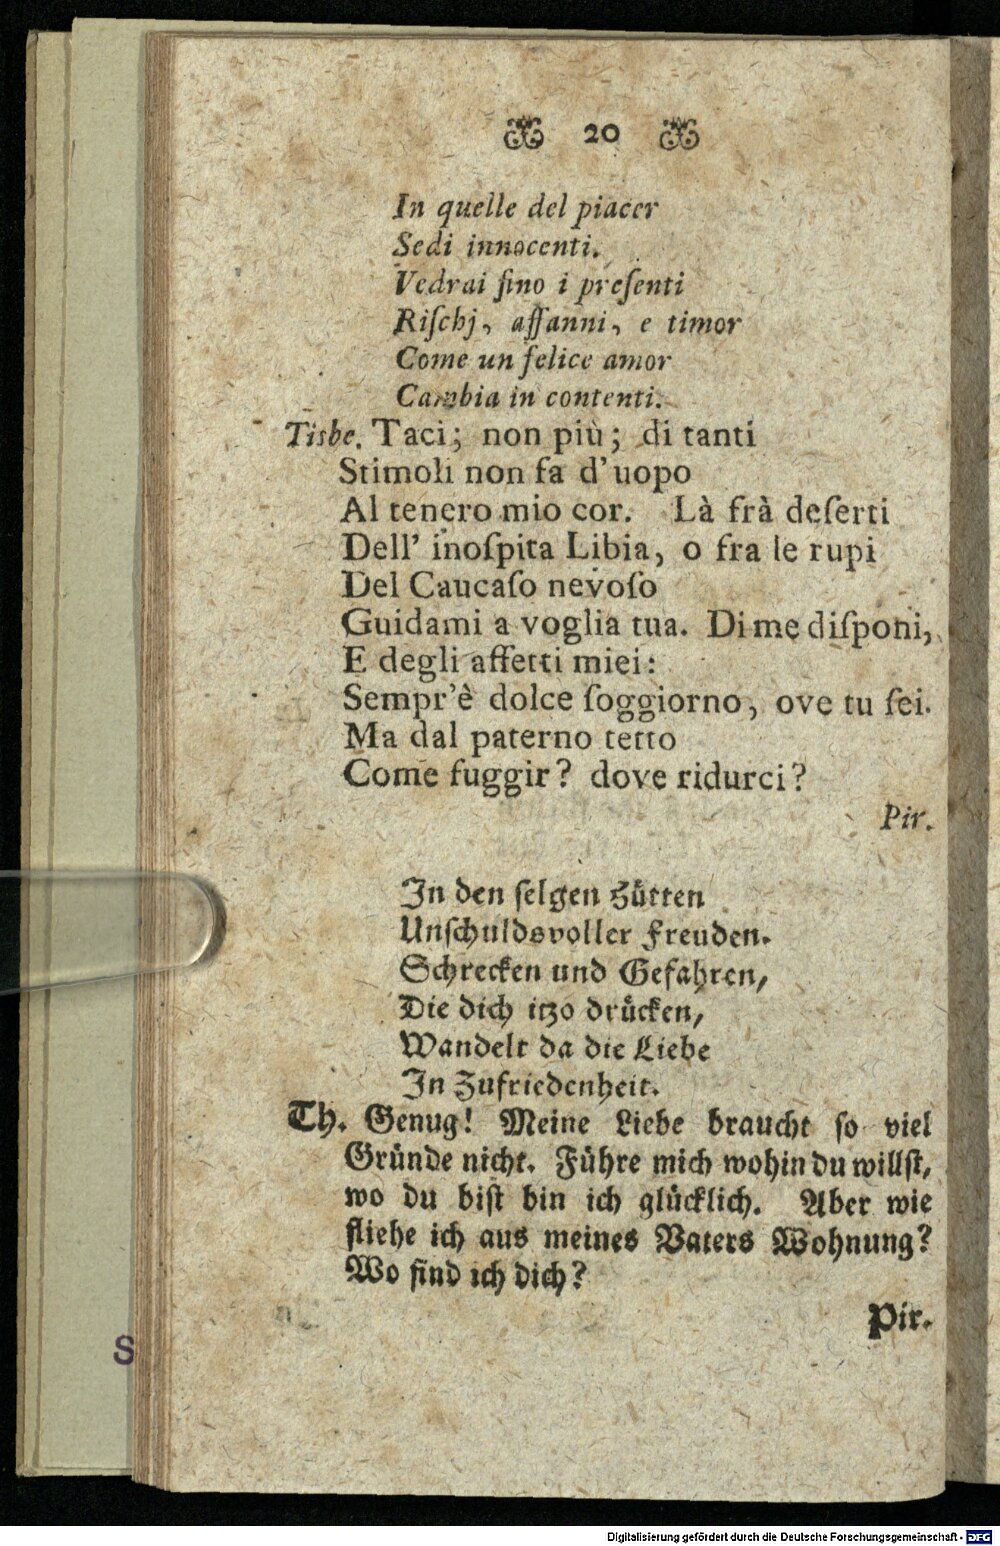 20
In quelle del piacer
Sedi innocenti.
Vedrai ſino i preſenti
Riſchj, affanni, e timor
Come un felice amor
Cambia in contenti.
Tisbe. Taci; non più; di tanti
Stimoli non fa d'uopo
Al tenero mio cor. Là frà deſerti
Dell' inoſpita Libia, o fra le rupi
Del Caucaſo nevoſo
Guidami a voglia tua. Di me diſponi,
E degli affetti miei:
Sempr'è dolce ſoggiorno, ove tu ſei.
Ma dal paterno tetto
Come fuggir? dove ridurci?
Pir.
In den ſelgen Hütten
Unſchuldsvoller Freuden.
Schrecken und Gefahren,
Die dich itzo drücken,
Wandelt da die Liebe
In Zufriedenheit.
Th. Genug! Meine Liebe braucht ſo viel
Gründe nicht. Führe mich wohin du willſt,
wo du biſt bin ich glücklich. Aber wie
fliehe ich aus meines Vaters Wohnung?
Wo find ich dich?
Pir.
S
Digitalisierung gefördert durch die Deutsche Forschungsgemeinschaft - DFG